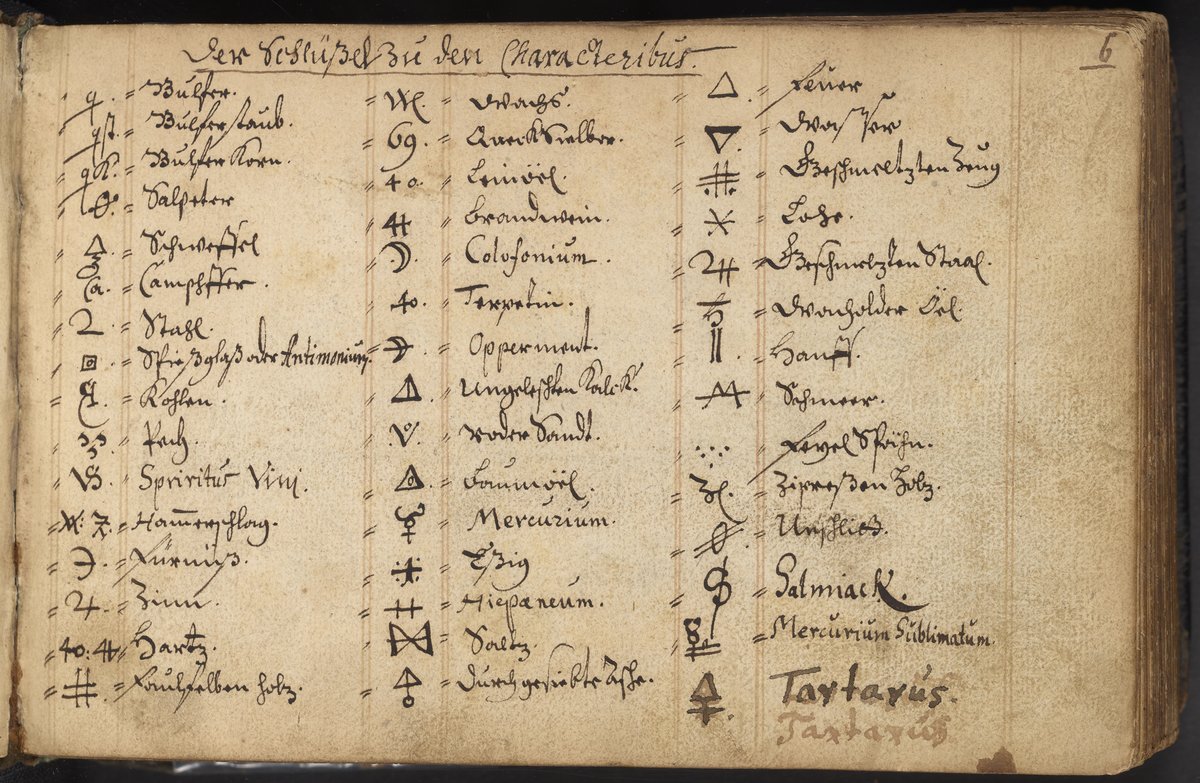 Der Schlüßel zu den Characteribus.
6
q. = Bulfer.
qst. = Bulferstaub.
qK. = Bulfer Korn.
= Salpeter
= Schweffel
Ca. = Campffer.
2 = Stahl.
= Spießglaß oder Antimonium.
= Kohlen.
= Pech.
= Spriritus Vini.
= Ham̄erschlag.
= Fürniß.
♃ = Zinn.
40: = Hartz.
= Faulfelben holz.
= Wachs.
69. = Queck Sielber.
40. = Leinöel.
= Brandwein.
☽. = Colofonium.
40. = Terpetin.
= Opperment.
= Ungeleschten Kalck.
= roder Sandt.
= Baumöel.
☿ = Mercurium.
= Eßig
= Saltz.
= durch gesiebte Asche.
△ = Feuer
▽. = Wasser
= Geschmeltzten Zeug
= Lohe.
= Geschmeltzten Staal.
= Wacholder Öel.
= Hanff.
= Schmeer.
= Feyel Spöhn.
= Zipreßen Holz.
= Unschliet.
= Salmiack.
= Mercurium Sublimatum.
Tartarus.
Tartarus